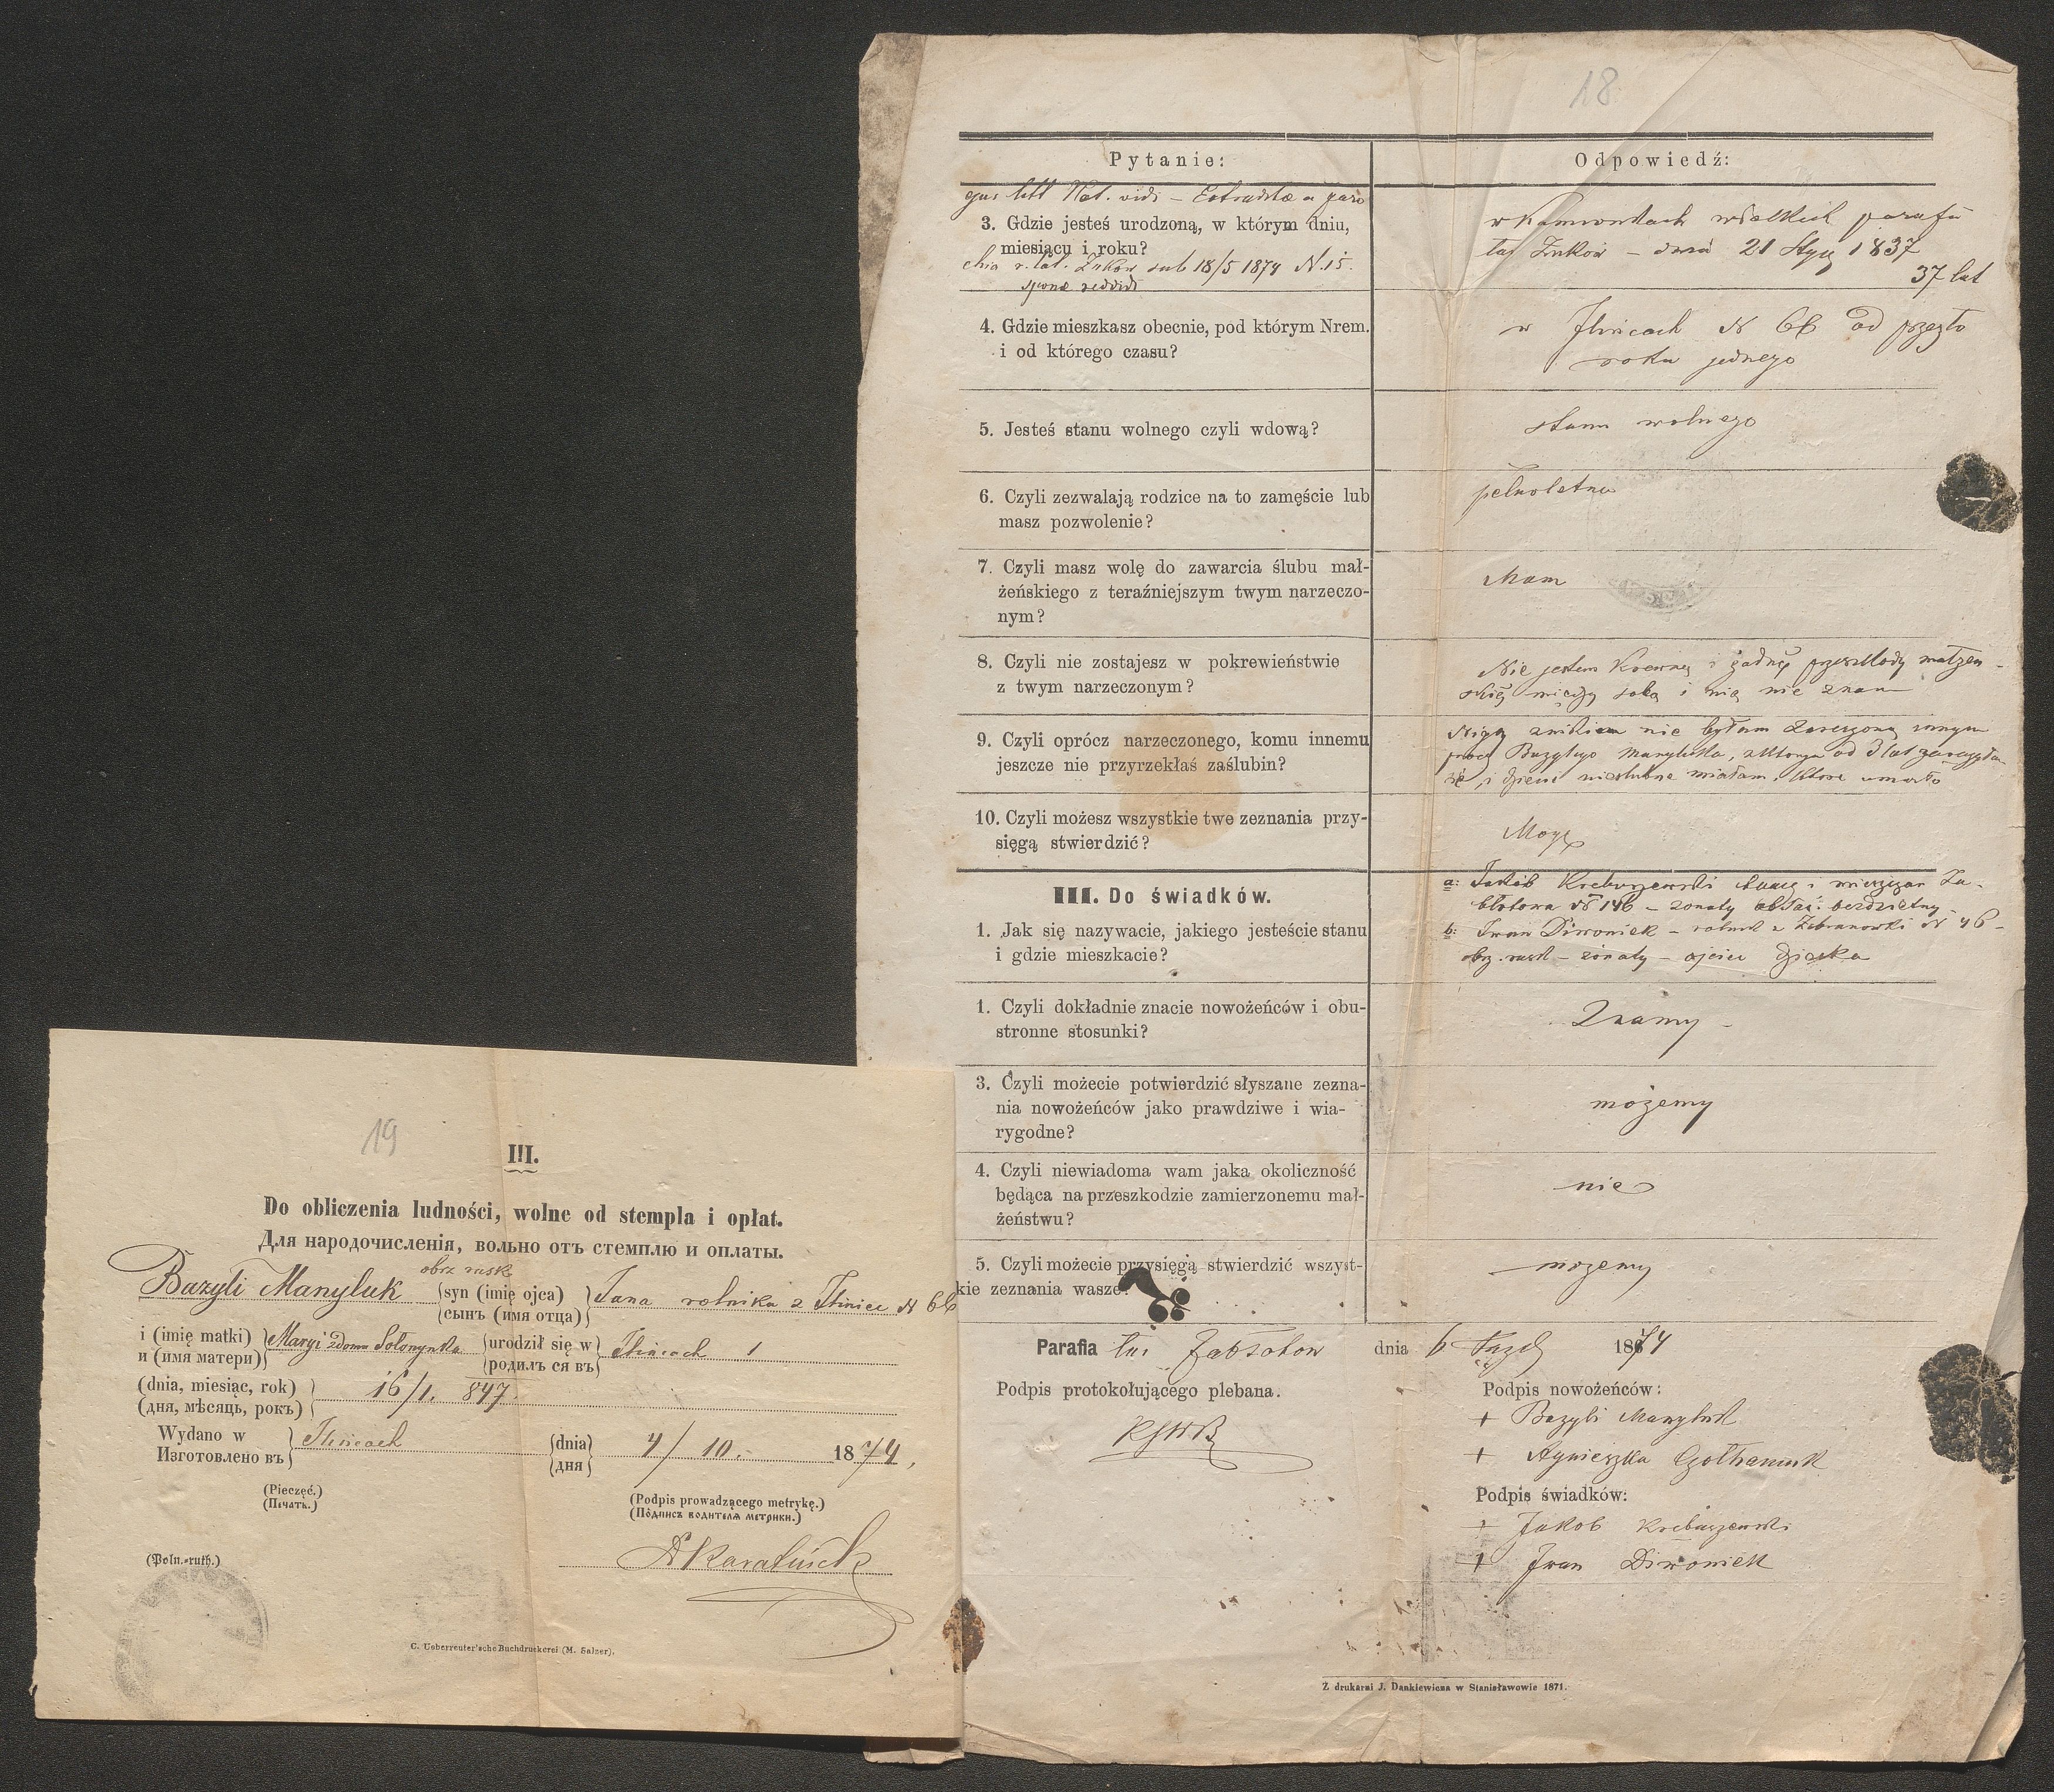 18
Pytanie:
Odpowiedź:
3. Gdzie jesteś urodzoną, w którym dniu,
miesiącu i roku?
18/5 1874 N. 15.
w Kamionkach wielkich parafii
łac Żuków – dnia 21 Stycz 1837
37 lat
4. Gdzie mieszkasz obecnie, pod którym Nrem.
i od którego czasu?
w Ilińcach N 66 od przeszło
roku jednego
5. Jesteś stanu wolnego czyli wdową?
stanu wolnego
6. Czyli zezwalają rodzice na to zamęście lub
masz pozwolenie?
pełnoletna
7. Czyli masz wolę do zawarcia ślubu mał-
żeńskiego z teraźniejszym twym narzeczo-
nym?
Mam
8. Czyli nie zostajesz w pokrewieństwie
z twym narzeczonym?
Nie jestem krewną i żadnej przeszkody małżeń-
skiej między sobą i nią nie znam
9. Czyli oprócz narzeczonego, komu innemu
jeszcze nie przyrzekłaś zaślubin?
nie byłam zaręczoną innym
Bazylego Manyluka, z którym od 3 lat
się, i dziecie nieślubne miałam, które umarło
10. Czyli możesz wszystkie twe zeznania przy-
sięgą stwierdzić?
Mogę
III. Do świadków.
1. Jak się nazywacie, jakiego jesteście stanu
i gdzie mieszkacie?
a: Jakób Krebuszewski i mieszczan Za-
błotowa N 146 – żonaty bezdzietny
b: Iwan Diwoniek – rolnik z N 46 –
obrz. rusk – żonaty – ojciec dziecka
1. Czyli dokładnie znacie nowożeńców i obu-
stronne stosunki?
Znamy –
3. Czyli możecie potwierdzić słyszane zezna-
nia nowożeńców jako prawdziwe i wia-
rygodne?
możemy
4. Czyli niewiadoma wam jaka okoliczność
będąca na przeszkodzie zamierzonemu mał-
żeństwu?
nie
5. Czyli możecie przysięgą stwierdzić wszyst-
kie zeznania wasze?
możemy
Parafia łac Zabłotow dnia 6 Pazdz 1874
Podpis protokołującego plebana.
Podpis nowożeńców:
+ Bazyli Manyluk
+ Agnieszka
Podpis świadków:
+ Jakob Krebuszewski
+ Iwan Diwoniek
Z drukarni J. Dankiewicza w Stanisławowie 1871.
19
III.
Do obliczenia ludności, wolne od stempla i opłat.
Для народочисленія, вольно отъ стемплю и оплаты.
obrz rusk
Bazyli Manyluk syn (imię ojca) Jana rolnika z Iliniec N 66
сынъ (имя отца)
i (imię matki) Maryi z domu Sołonynka urodził się w Ilincach 1
и (имя матери) родилъ ся въ
(dnia, miesiąc, rok) 16/1. 847.
(дня, мѣсяць, рокъ)
Wydano w Ilińcach dnia 4/10. 1874,
Изготовлено въ дня
(Pieczęć.)
(Печать.)
(Podpis prowadzącego metrykę.)
(Подпись водителя метрики.)
(Poln.-ruth.)
C. Ueberreuter'sche Buchdruckerei (M. Salzer).